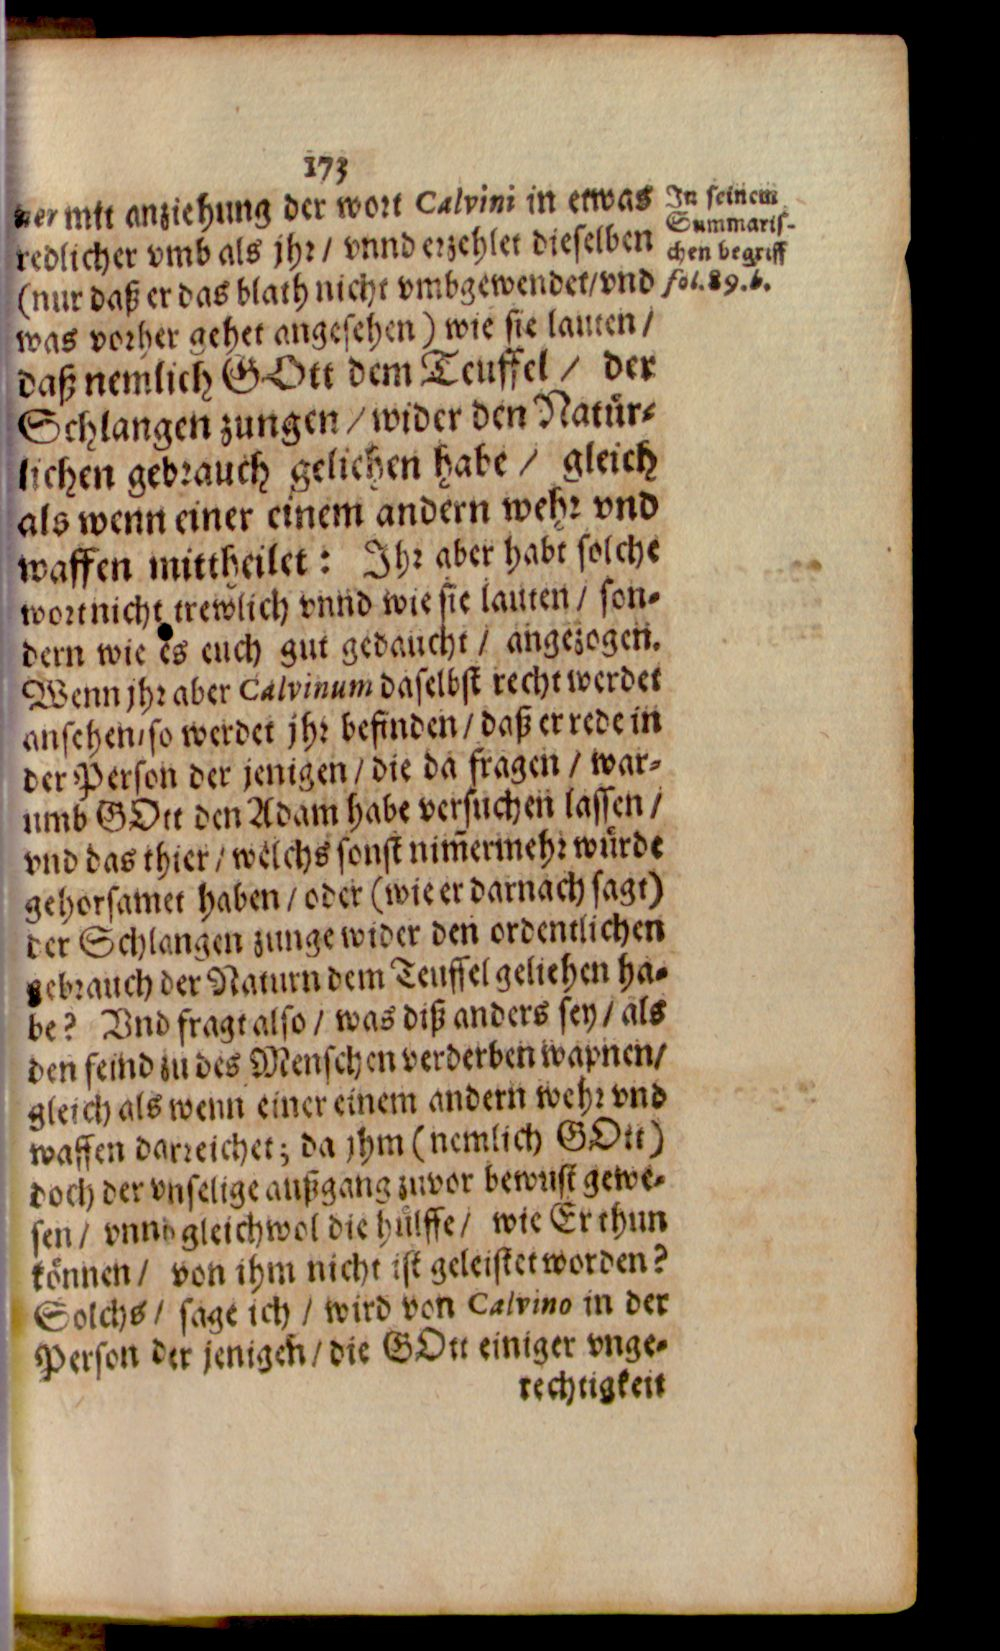 173
ner mit anziehung der wort Calvini in etwas
redlicher vmb als jhr / vnnd erzehlet dieselben
(nur daß er das blath nicht vmbgewendet / vnd
was vorher gehet angesehen) wie sie lauten /
daß nemlich GOtt dem Teuffel / der
Schlangen zungen / wider den Natuͤr-
lichen gebrauch geliehen habe / gleich
als wenn einer einem andern wehr vnd
waffen mittheilet: Ihr aber habt solche
wort nicht trewlich vnnd wie sie lauten / son-
dern wie es euch gut gedaucht / angezogen.
Wenn jhr aber Calvinum daselbst recht werdet
ansehen / so werdet jhr befinden / daß er rede in
der Person der jenigen / die da fragen / war-
umb GOtt den Adam habe versuchen lassen /
vnd das thier / welchs sonst nim̄ermehr wuͤrde
gehorsamet haben / oder (wie er darnach sagt)
der Schlangen zunge wider den ordentlichen
gebrauch der Naturn dem Teuffel geliehen ha-
be? Vnd fragt also / was diß anders sey / als
den feind zu des Menschen verderben wapnen /
gleich als wenn einer einem andern wehr vnd
waffen darreichet; da jhm (nemlich GOtt)
doch der vnselige außgang zuvor bewust gewe-
sen / vnnd gleichwol die huͤlffe / wie Er thun
koͤnnen / von ihm nicht ist geleistet worden?
Solchs / sage ich / wird von Calvino in der
Person der jenigen / die GOtt einiger vnge-
rechtigkeit
In seinem
Summaris-
chen begriff
fol. 89. b.